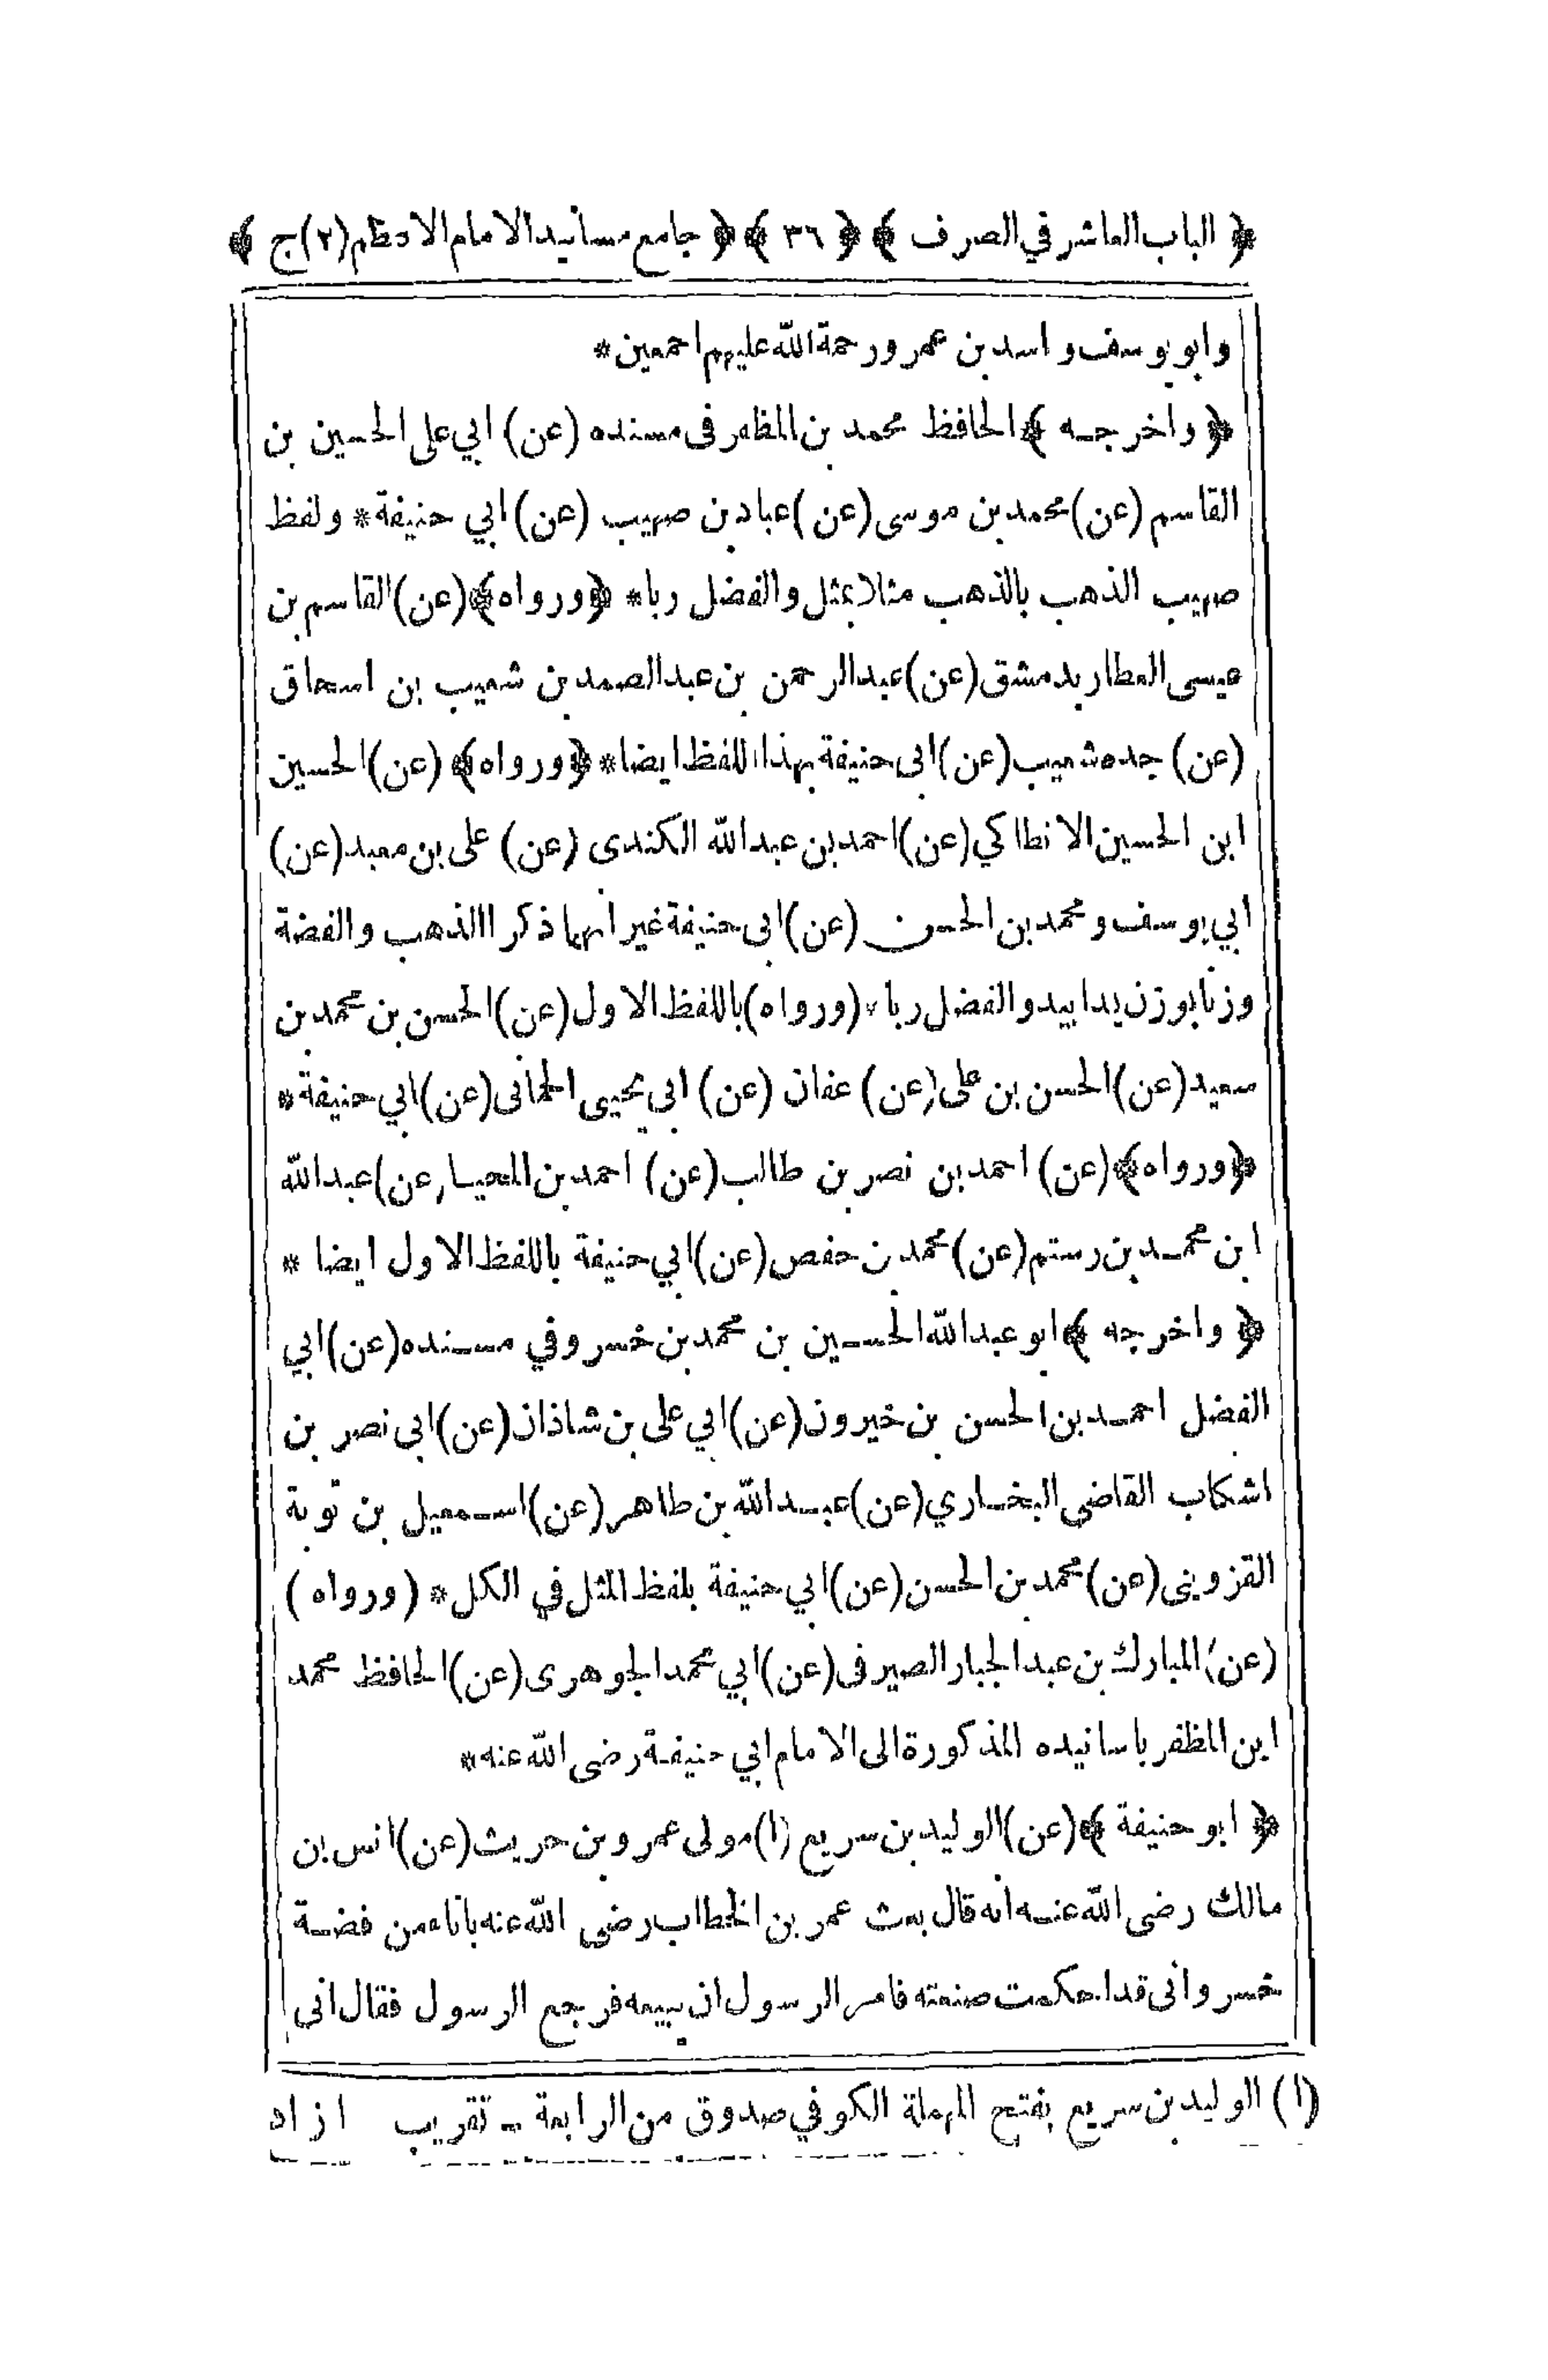 ﴿ الباب العاشر في الصرف ﴾ ﴿ ٣٦ ﴾ ﴿ جامع مسانيد الامام الاعظم (٢) ج ﴾
وابو يوسف و اسد بن عمرو رحمة الله عليهم اجمعين *
﴿ واخرجه ﴾ الحافظ محمد بن المظفر فى مسنده (عن) ابي على الحسين بن
القاسم (عن) محمد بن موسى (عن) عباد بن صهيب (عن) ابي حنيفة * ولفظ
صهيب الذهب بالذهب مثلا بمثل والفضل ربا * ﴿ ورواه ﴾ (عن) القاسم بن
عيسى العطار بدمشق (عن) عبد الرحمن بن عبد الصمد بن شعيب بن اسحاق
(عن) جده شعيب (عن) ابى حنيفة بهذا اللفظ ايضا * ﴿ ورواه ﴾ (عن) الحسين
ابن الحسين الانطاكي (عن) احمد بن عبد الله الكندى (عن) على بن معبد (عن)
ابي يوسف و محمد بن الحسن (عن) ابى حنيفة غير انهما ذكرا الذهب والفضة
وزنا بوزن يدا بيد والفضل ربا * (ورواه) باللفظ الاول (عن) الحسن بن محمد بن
سعيد (عن) الحسن بن على (عن) عفان (عن) ابي يحيى الحمانى (عن) ابي حنيفة *
﴿ ورواه ﴾ (عن) احمد بن نصر بن طالب (عن) احمد بن المحيا (عن) عبد الله
ابن محمد بن رستم (عن) محمد بن حفص (عن) ابي حنيفة باللفظ الاول ايضا *
﴿ واخرجه ﴾ ابو عبد الله الحسين بن محمد بن خسرو في مسنده (عن) ابي
الفضل احمد بن الحسن بن خيرون (عن) ابي على بن شاذان (عن) ابى نصر بن
اشكاب القاضى البخاري (عن) عبد الله بن طاهر (عن) اسمعيل بن توبة
القزوينى (عن) محمد بن الحسن (عن) ابي حنيفة بلفظ المثل في الكل * (ورواه)
(عن) المبارك بن عبد الجبار الصيرفى (عن) ابي محمد الجوهرى (عن) الحافظ محمد
ابن المظفر باسانيده المذكورة الى الامام ابي حنيفة رضى الله عنه *
﴿ ابو حنيفة ﴾ (عن) الوليد بن سريع (١) مولى عمرو بن حريث (عن) انس بن
مالك رضى الله عنه انه قال بعث عمر بن الخطاب رضى الله عنه باناء من فضة
خسروانى قد احكمت صنعته فامر الرسول ان يبيعه فرجع الرسول فقال انى
(١) الوليد بن سريع بفتح المهملة الكوفي صدوق من الرابعة - تقريب ازاد